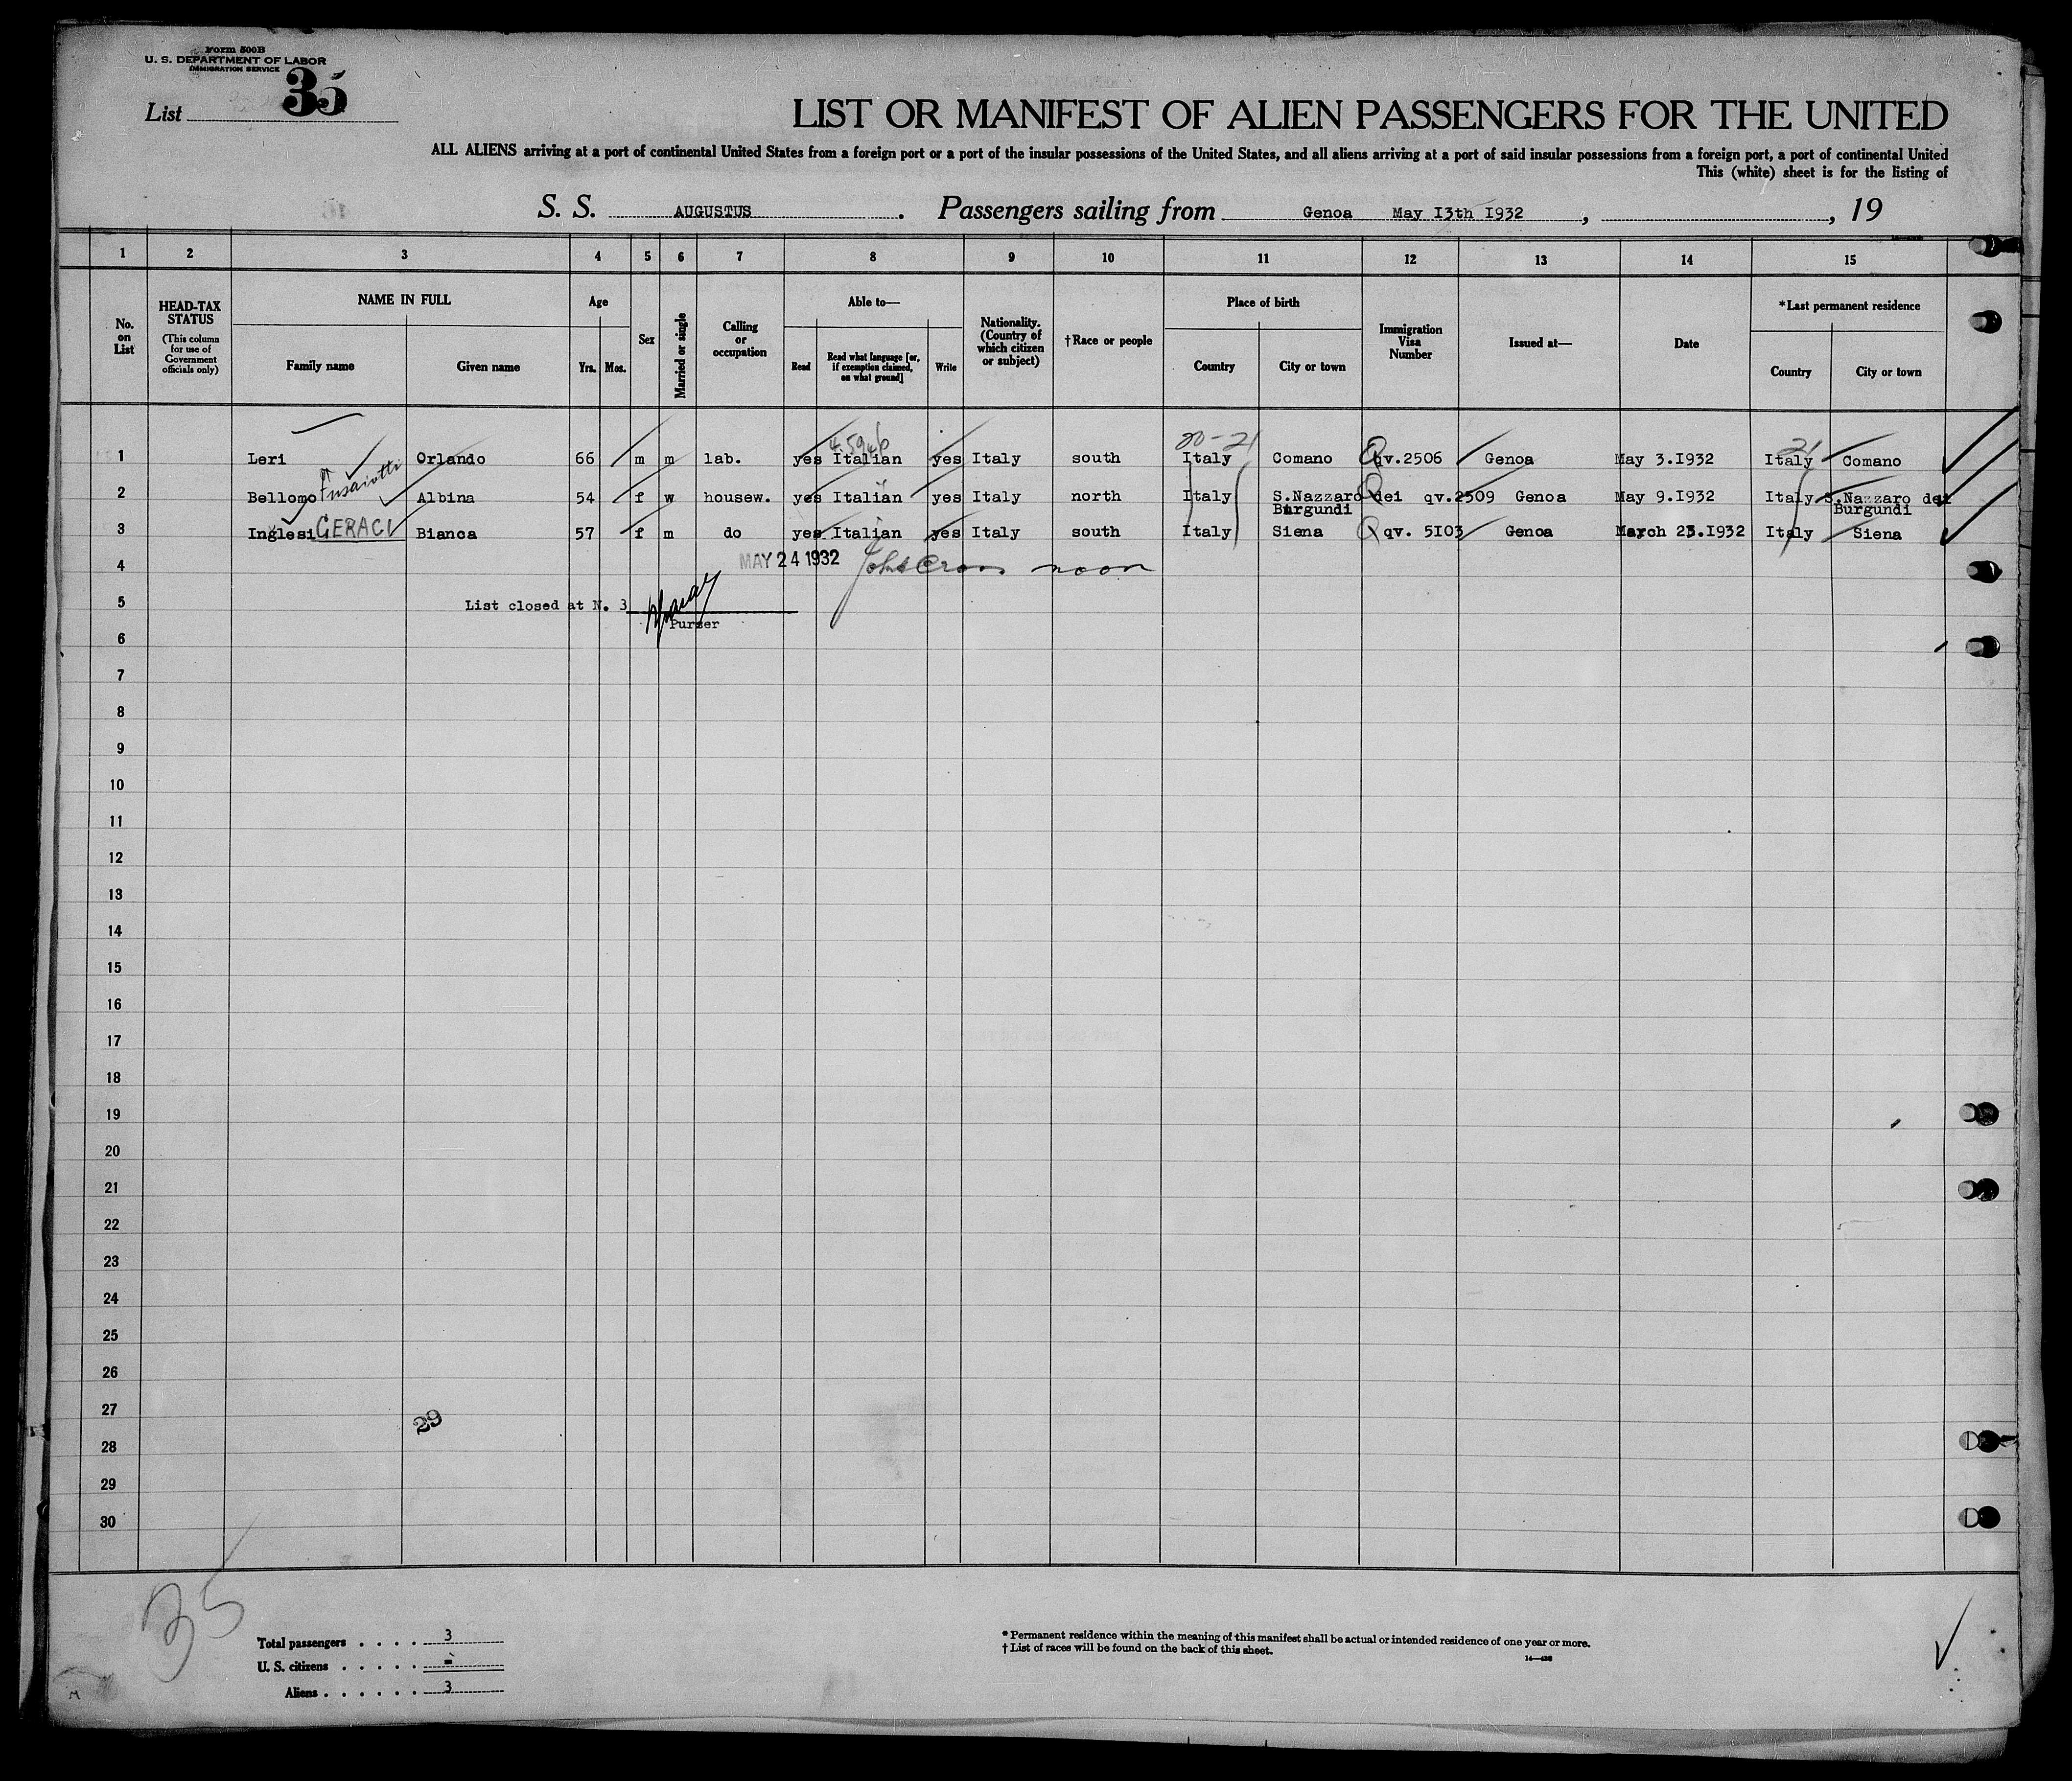 Form 500B
U. S. DEPARTMENT OF LABOR
IMMIGRATION SERVICE
List 35
LIST OR MANIFEST OF ALIEN PASSENGERS FOR THE UNITED
ALL ALIENS arriving at a port of continental United States from a foreign port or a port of the insular possessions of the United States, and all aliens arriving at a port of said insular possessions from a foreign port, a port of continental United
This (white) sheet is for the listing of
S. S. AUGUSTUS. Passengers sailing from Genoa May I3th I932, , 19
1 2 3 4 5 6 7 8 9 10 11 12 13 14 15
No. on List
HEAD-TAX STATUS
(This column for use of Government officials only)
NAME IN FULL
Family name Given name
Age
Yrs. Mos.
Sex
Married or single
Calling or occupation
Able to—
Read
Read what language [or, if exemption claimed, on what ground]
Write
Nationality. (Country of which citizen or subject)
†Race or people
Place of birth
Country City or town
Immigration Visa Number
Issued at—
Date
*Last permanent residence
Country City or town
20-21 21
1 Leri Orlando 66 m m lab. yes Italian yes Italy south Italy Comano qv.2506 Genoa May 3.I932 Italy Comano
2 Bellomo Albina 54 f w housew. yes Italian yes Italy north Italy S.Nazzaro dei Burgundi qv.2509 Genoa May 9.I932 Italy S.Nazzaro dei Burgundi
3 Inglesi GERACI Bianca 57 f m do yes Italian yes Italy south Italy Siena qv. 5I03 Genoa March 23.I932 Italy Siena
4 MAY 24 1932 noon
5 List closed at N. 3
Purser
6
7
8
9
10
11
12
13
14
15
16
17
18
19
20
21
22
23
24
25
26
27
29
28
29
30
35
Total passengers . . . . 3
U. S. citizens . . . . . -
Aliens . . . . . . 3
* Permanent residence within the meaning of this manifest shall be actual or intended residence of one year or more.
† List of races will be found on the back of this sheet.